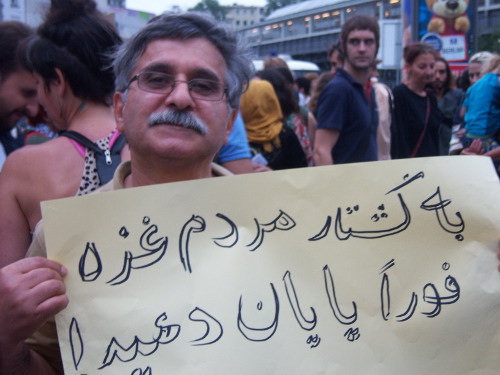 به کشتار مردم غزه
فوراً پایان دهید!